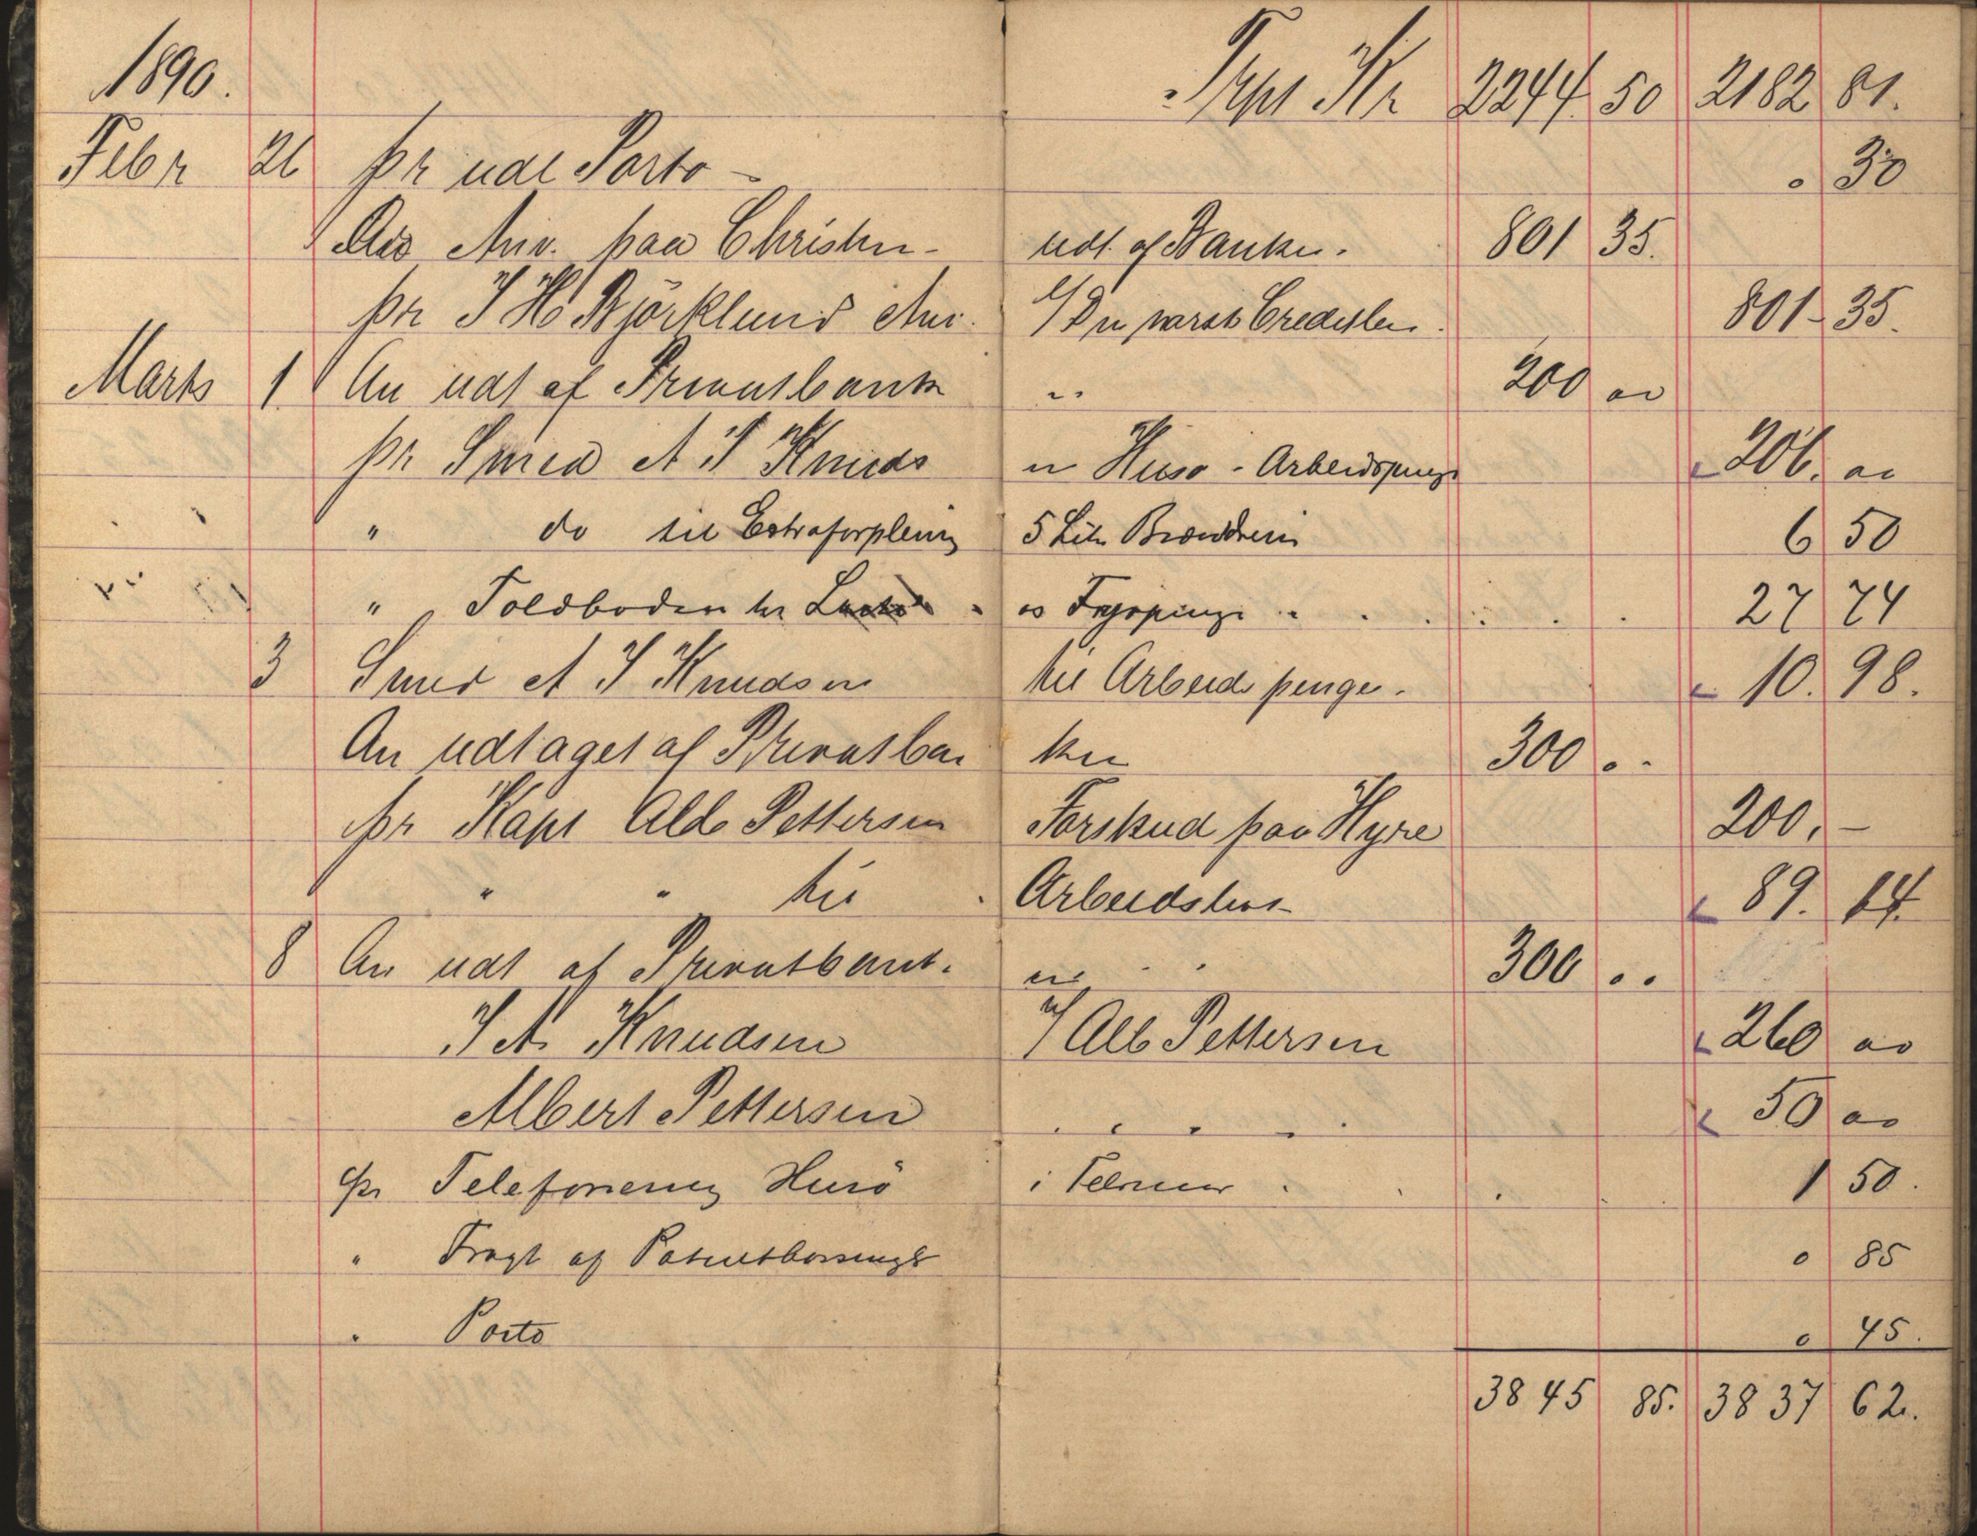 1890. Trpt Kr 2244. 50 2182 81.
Febr 26 pr udl Porto - " 30
Anv. paa Christn - udt. af Banken. 801 35.
pr I H Björklund Anv. 801 - 35.
Marts 1. An udt af Privatbank en 200 "
pr Smed A I Knuds en Husø - Arbeidspenge 206. "
" do til Extraforpleining 5 Litr Brændevin 6 50
" Toldboden for os Fyrpenge 27 74
3 Smed A I Knudsen til Arbeidspenge. 10. 98.
An udtaget af Privatban ken 300 "
pr Kapt Alb Pettersen Forskud paa Hyre 200. -
" " til Arbeidshus 89. 14.
8 An udt af Privatbank. en 300 "
I A. Knudsen v/ Alb Pettersen 260 "
Albert Pettersen " " " 50 "
pr Telefonering Husö i Februar 1 50.
" Fragt af " 85
" Porto " 45.
3845 85. 3837 62.